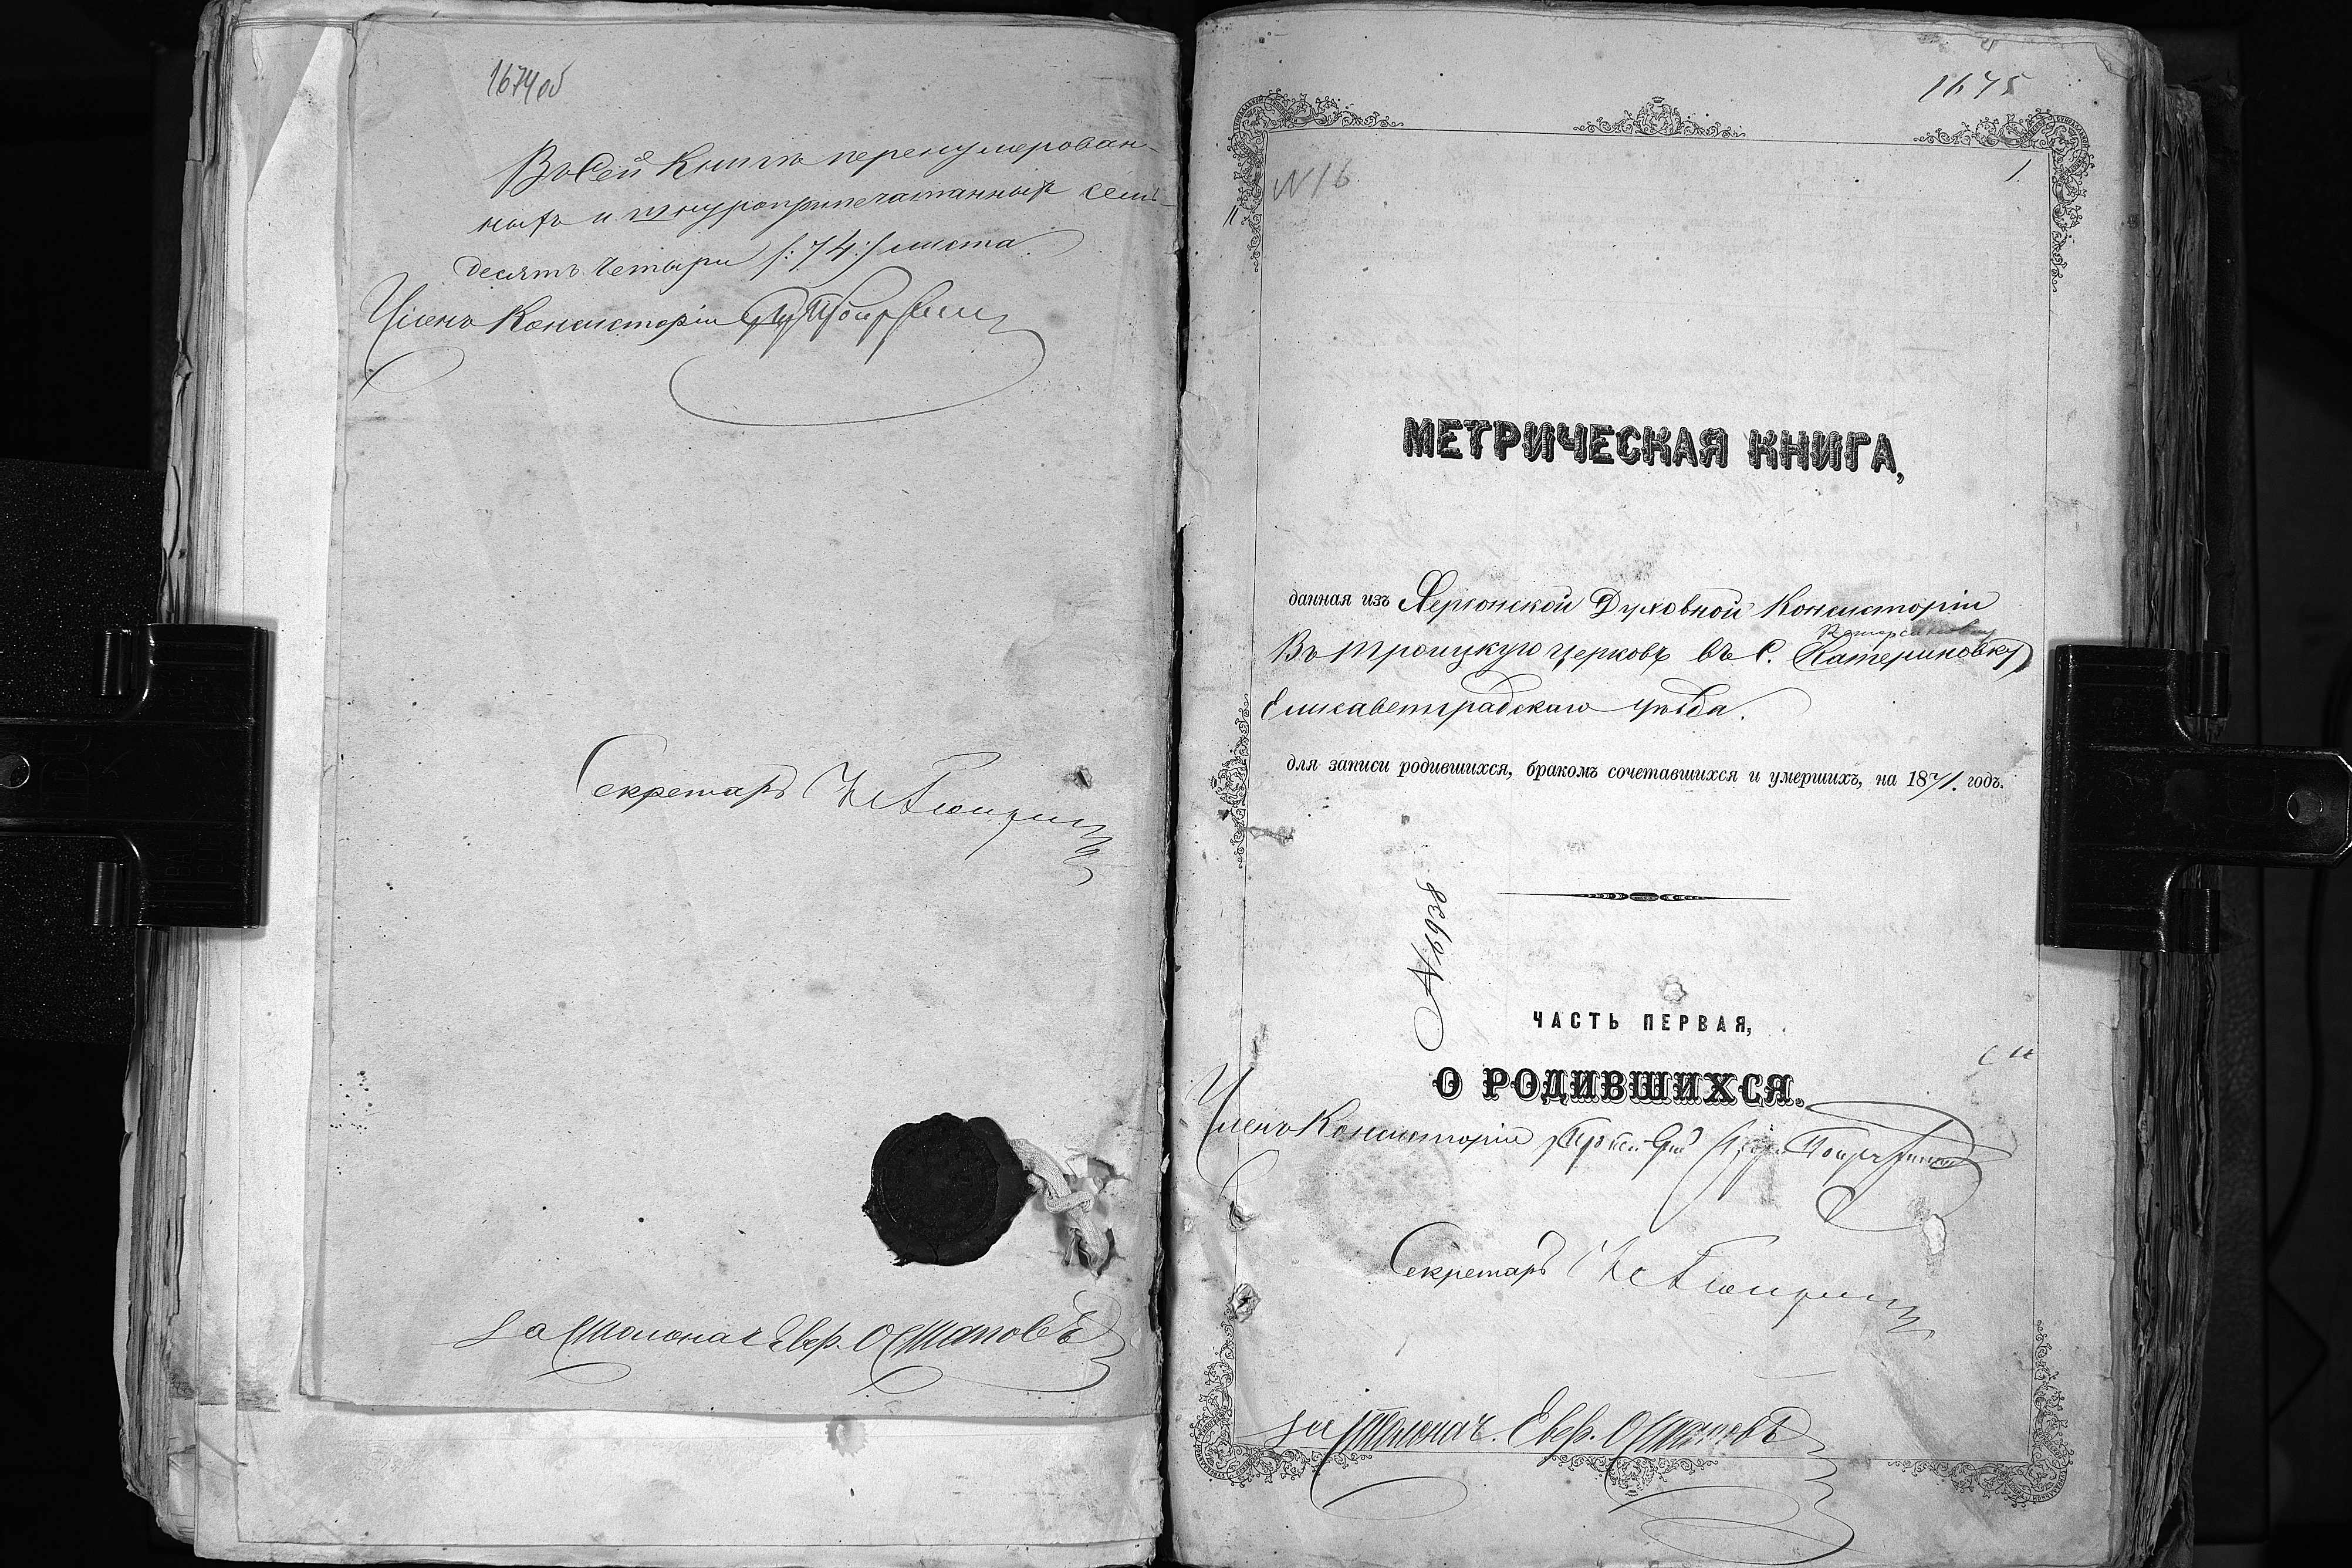 1674об
Въ сей книгѣ перенумерован-
ныхъ и шнуроприпечатанныхъ семь-
десятъ четыре /:74:/ листа
Членъ Консисторіи
Секретарь
За Столонач. Евф. Остаповъ
1675
1.
N16
МЕТРИЧЕСКАЯ КНИГА,
данная изъ Херсонской Духовной Консисторіи
Въ Троицкую церковь въ с. Катериновку
Елисаветградскаго уѣзда.
для записи родившихся, бракомъ сочетавшихся и умершихъ, на 1871. годъ.
№ 1698
ЧАСТЬ ПЕРВАЯ,
О РОДИВШИХСЯ.
Членъ Консисторіи
Секретарь
За Столонач. Евф. Остаповъ